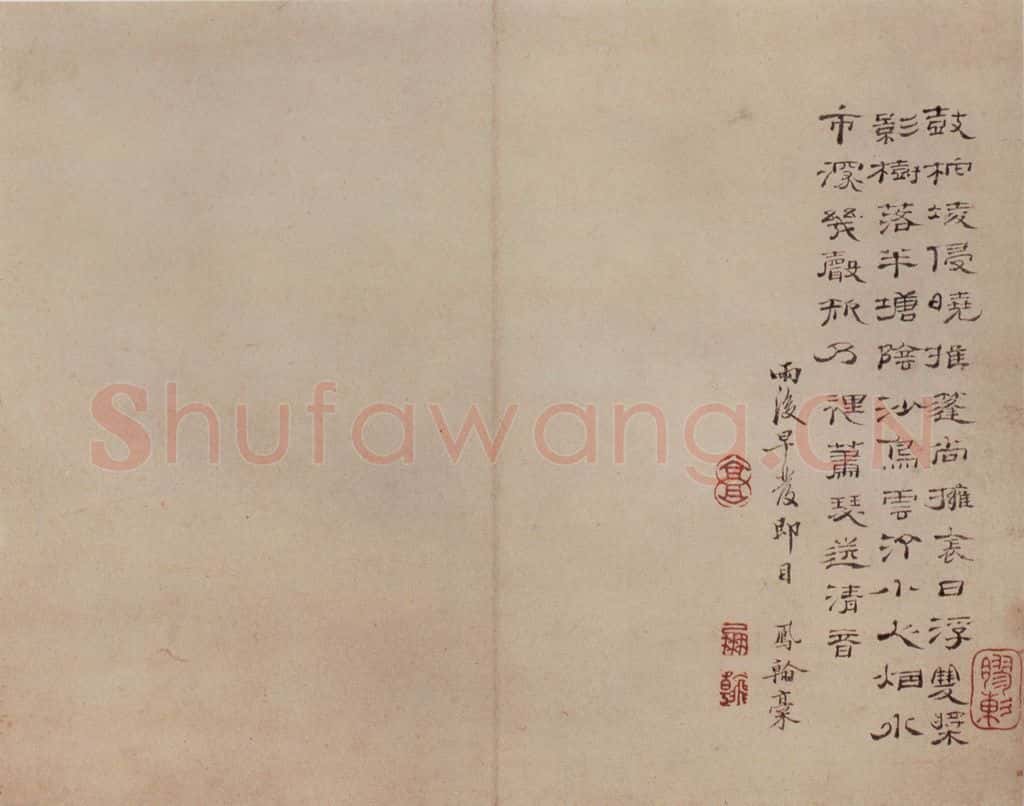 鼓柁侵曉推篷尚擁衾日浮雙槳
影樹落半塘陰沙鳥雲汀小人烟水
市深幾聲欸乃裡蕭瑟送清音
雨後早發即目 鳳翰稾
Shufawang.CN